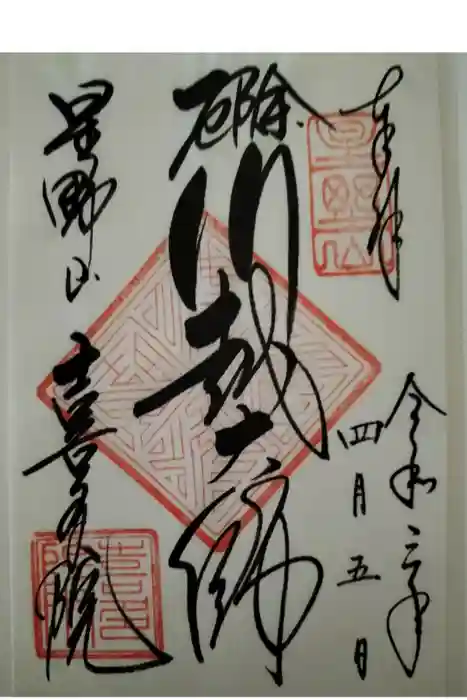 奉拝
令和三年
四月五日
厄除
川越大師
星野山
喜多院